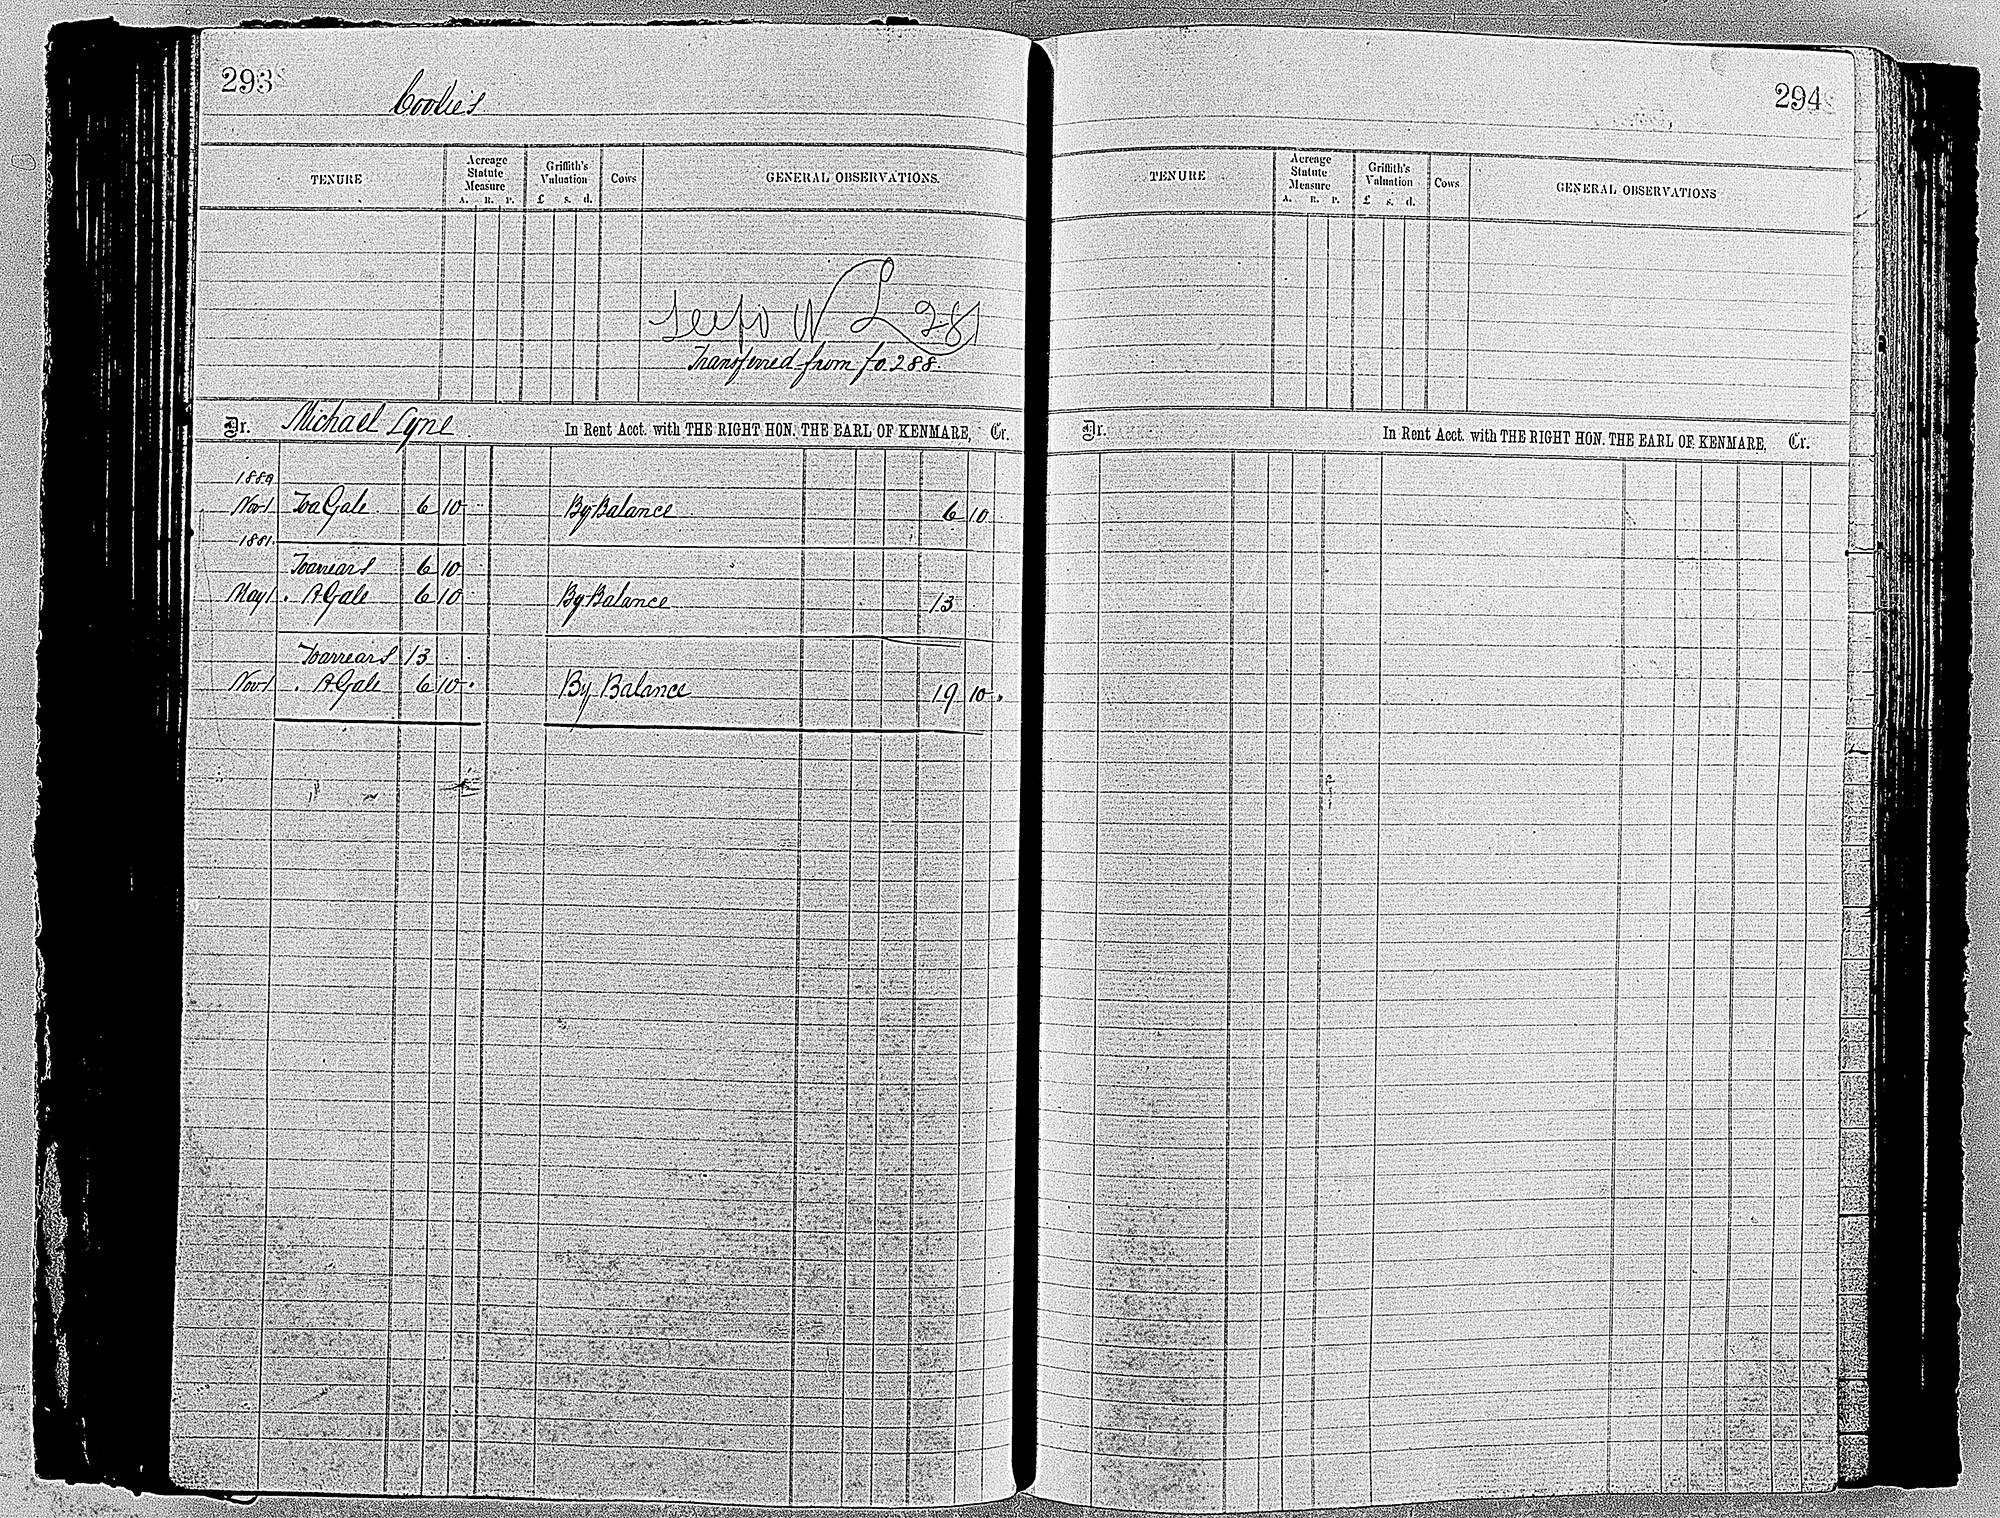 293
Coolies
TENURE
Acreage Statute Measure
A. R. P.
Griffith's Valuation
£ s. d.
Cows
GENERAL OBSERVATIONS.
see fo N L 281
Transferred from fo 288.
Dr. Michael Lyne In Rent Acct. with THE RIGHT HON. THE EARL OF KENMARE, Cr.
1880
Nov 1 To a Gale 6 10 By Balance 6 10
1881
To arrears 6 10
May 1 . A Gale 6 10 By Balance 13
To arrears 13
Nov 1 . A Gale 6 10 By Balance 19 10
294
TENURE
Acreage Statute Measure
A. R. P.
Griffith's Valuation
£ s. d.
Cows
GENERAL OBSERVATIONS
Dr. In Rent Acct. with THE RIGHT HON. THE EARL OF KENMARE, Cr.